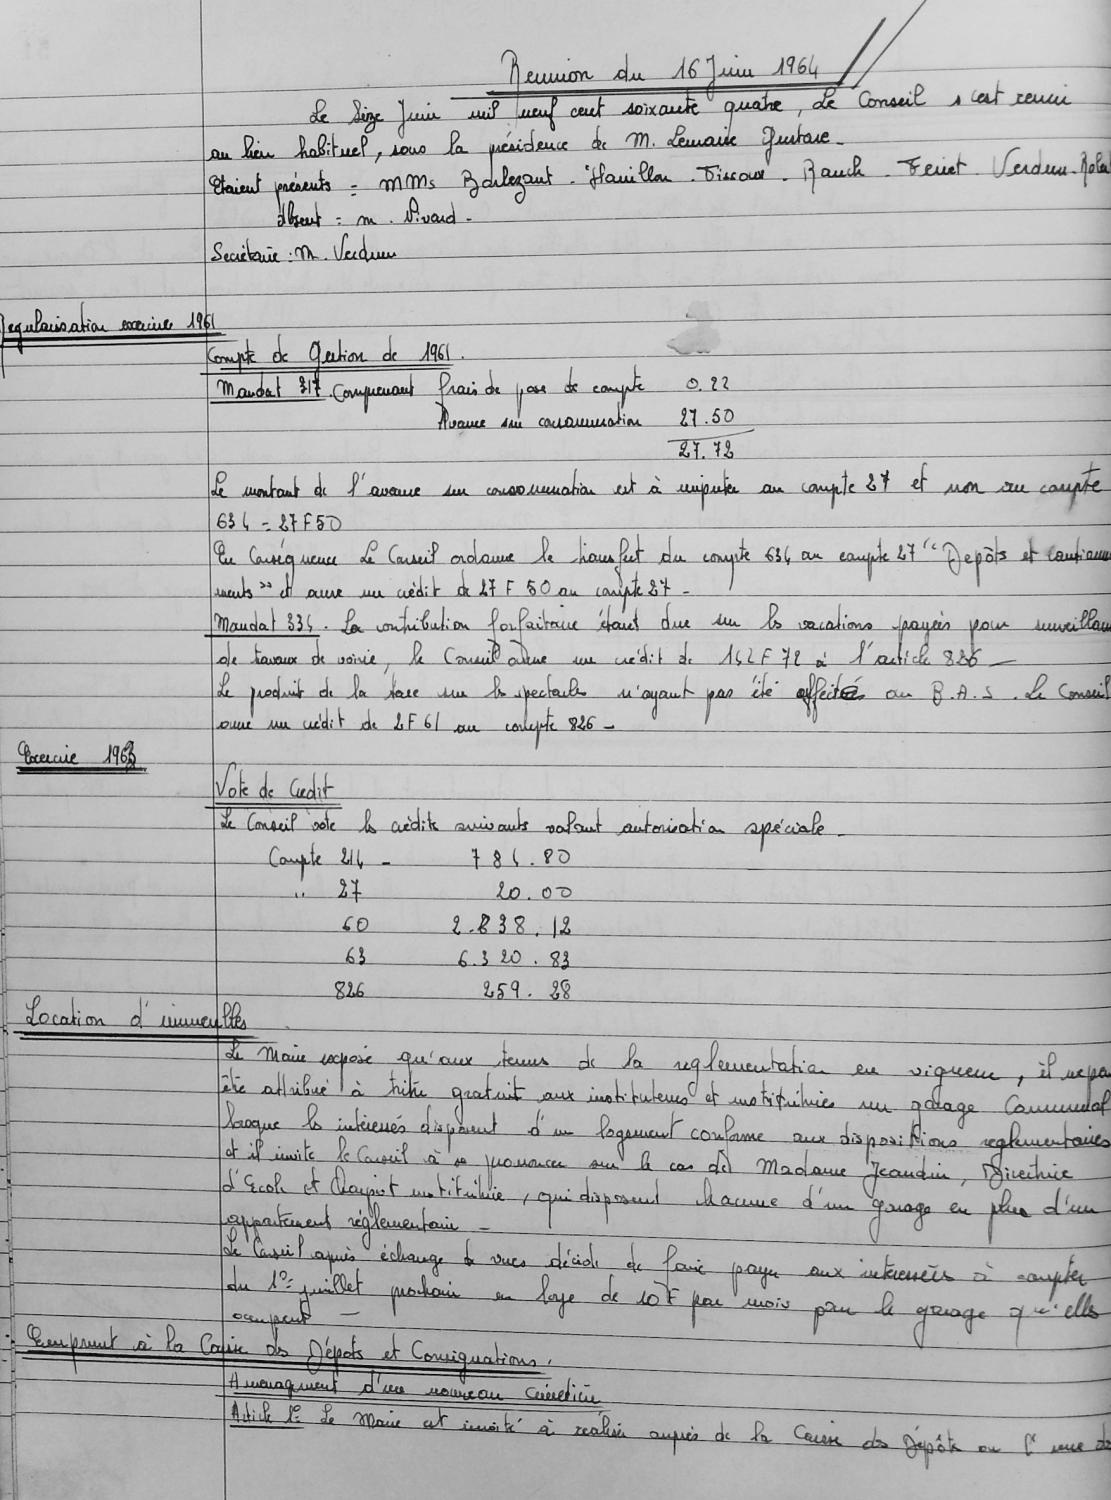 Réunion du 16 Juin 1964
Le Seize Juin mil neuf cent soixante quatre, Le Conseil s'est réuni
au lieu habituel, sous la présidence de M. Lemaire Gustave.
Etaient présents = MMs Barlezant - - - Rauch - Feriet - Verdun -
Absent = m. Vivard -
Secrétaire : M. Verdun
Regularisation exercice 1961
Compte de Gestion de 1961.
Mandat 317. Comprenant frais de pose de compte 0.22
Avance sur consommation 27.50
27.72
Le montant de l'avance sur consommation est à imputer au compte 27 et non au compte
634 = 27F50
En Conséquence Le Conseil ordonne le transfert du compte 634 au compte 27 " Depôts et cautionne
ments " et ouvre un crédit de 27 F 50 au compte 27 -
Mandat 334. La contribution forfaitaire étant due sur les vacations payées pour surveillan
de travaux de voirie, le Conseil ouvre un crédit de 142F72 à l'article 826 -
Le produit de la taxe sur les spectacles n'ayant pas été affectés au B.A.S. Le Conseil
ouvre un crédit de 2F61 au compte 826 -
Exercice 1963
Vote de Credit
Le Conseil vote les crédits suivants valant autorisation spéciale -
Compte 214 - 784.80
" 27 20.00
60 2.838.12
63 6.320.83
826 259.28
Location d'immeubles
Le Maire expose qu'aux termes de la reglementation en vigueur, il ne pa
être attribué à titre gratuit aux instituteurs et institutrices un garage Communal
lorsque les intéressés disposent d'un logement conforme aux dispositions reglementaires
et il invite le Conseil à se prononcer sur le cas de Madame Jeandin, Directrice
d'Ecole et institutrice, qui disposent chacune d'un garage en plus d'un
appartement réglementaire -
Le Conseil après échange de vues décide de faire payer aux interessées à compter
du 1er juillet prochain un loyer de 10F par mois pour le garage qu'elles
occupent -
Emprunt à la Caisse des Dépots et Consignations.
Amenagement d'un nouveau cimetière
Article 1er Le Maire est invité à réaliser auprès de la Caisse des Dépôts